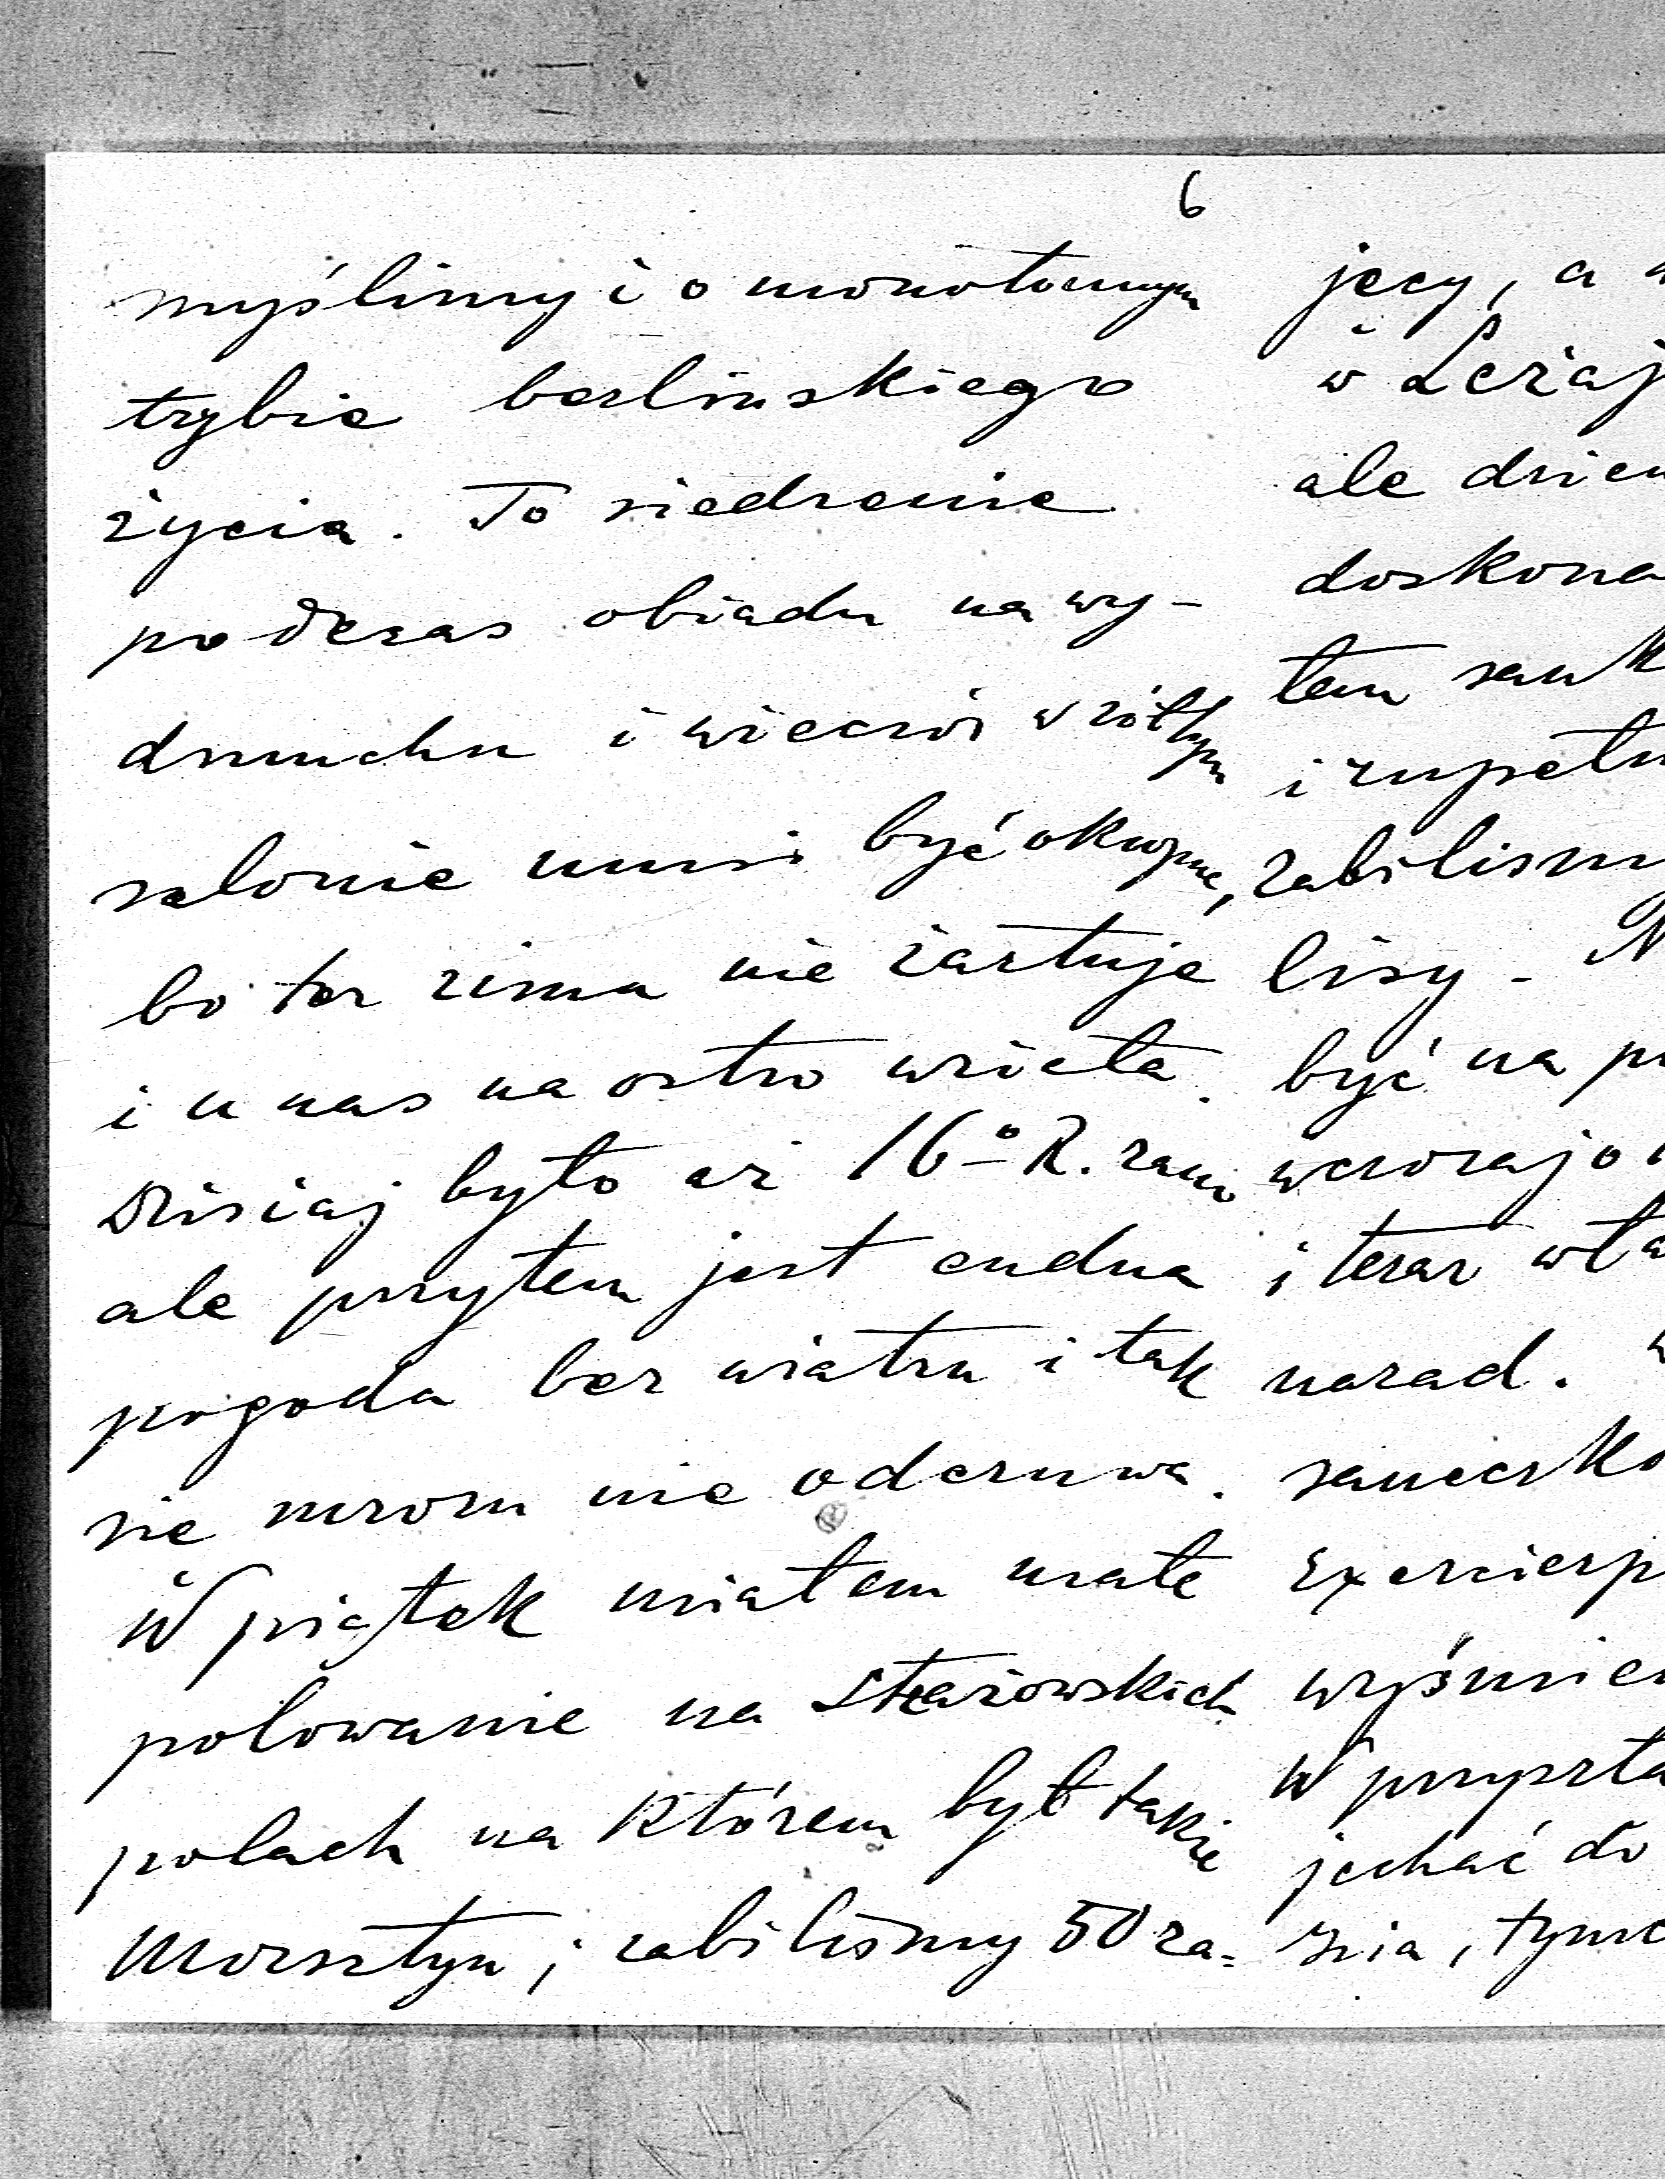 6
myślimy i o monotonnym
trybie berlinskiego
życia. To siedzenie
podczas obiadu na wy-
dmuchu i wieczór w żółtym
salonie musi być okupne,
bo też zima nie żartuje
i u nas na ostro wzięła.
Dzisiaj było aż 16° R. rano
ale przytem jest cudna
pogoda bez wiatru i tak
się mrozu nie odczuwa.
W piątek miałem małe
polowanie na Strażowskich
polach na którem był także
Morsztyn; zabiliśmy 50 za=
jęcy, a
w Leżaj
ale dzien
doskona
tem sank
i zupełn
zabilism
lisy - N
być na p
wczoraj o
i teraz wła
nazad. w
saneczko
Exercierp
wyśmien
W przyszła
jechać do
nia, tymc